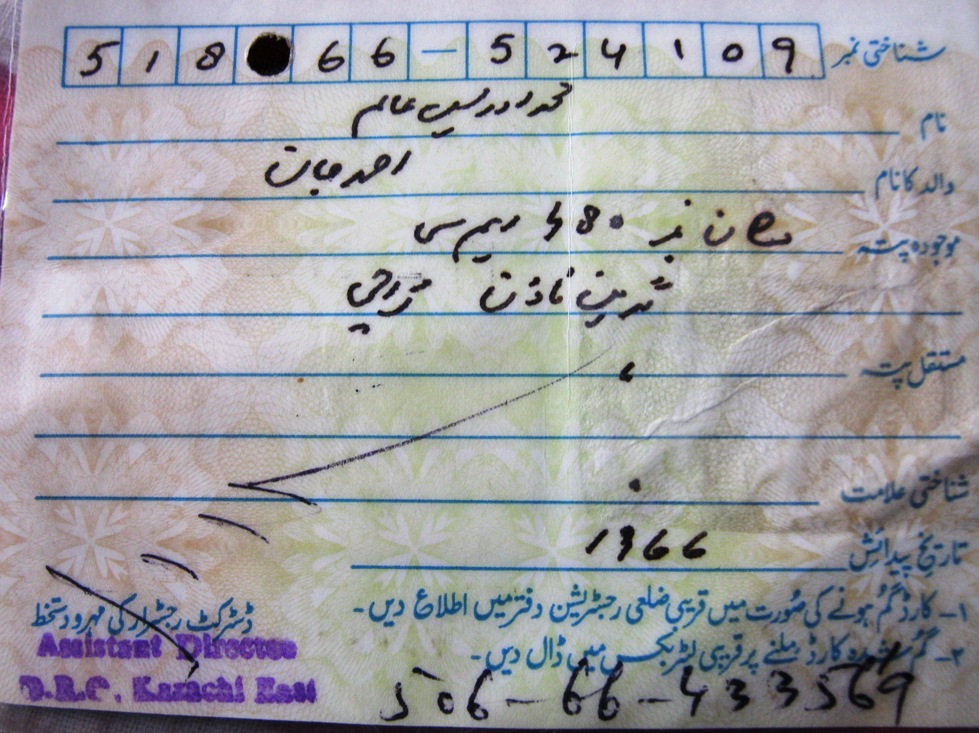 شناختی نمبر 518 66-524109
نام محمد ادریس عالم
والد کا نام احمد جان
موجودہ پتہ مکان نمبر 480
ٹاؤن کراچی
مستقل پتہ
شناختی علامت
تاریخ پیدائش 1966
۱- کارڈ گم ہونے کی صورت میں قریبی ضلعی رجسٹریشن دفتر میں اطلاع دیں-
۲- گم شدہ کارڈ ملنے پر قریبی لیٹر بکس میں ڈال دیں-
ڈسٹرکٹ رجسٹرار کی مہر و دستخط
Assistant Director
D.R.O, Karachi East
506-66-433569